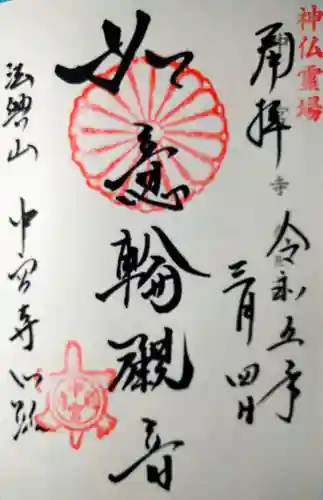 神仏霊場
奉拝
令和五年
三月四日
如意輪観音
法興山 中宮寺門跡
寺